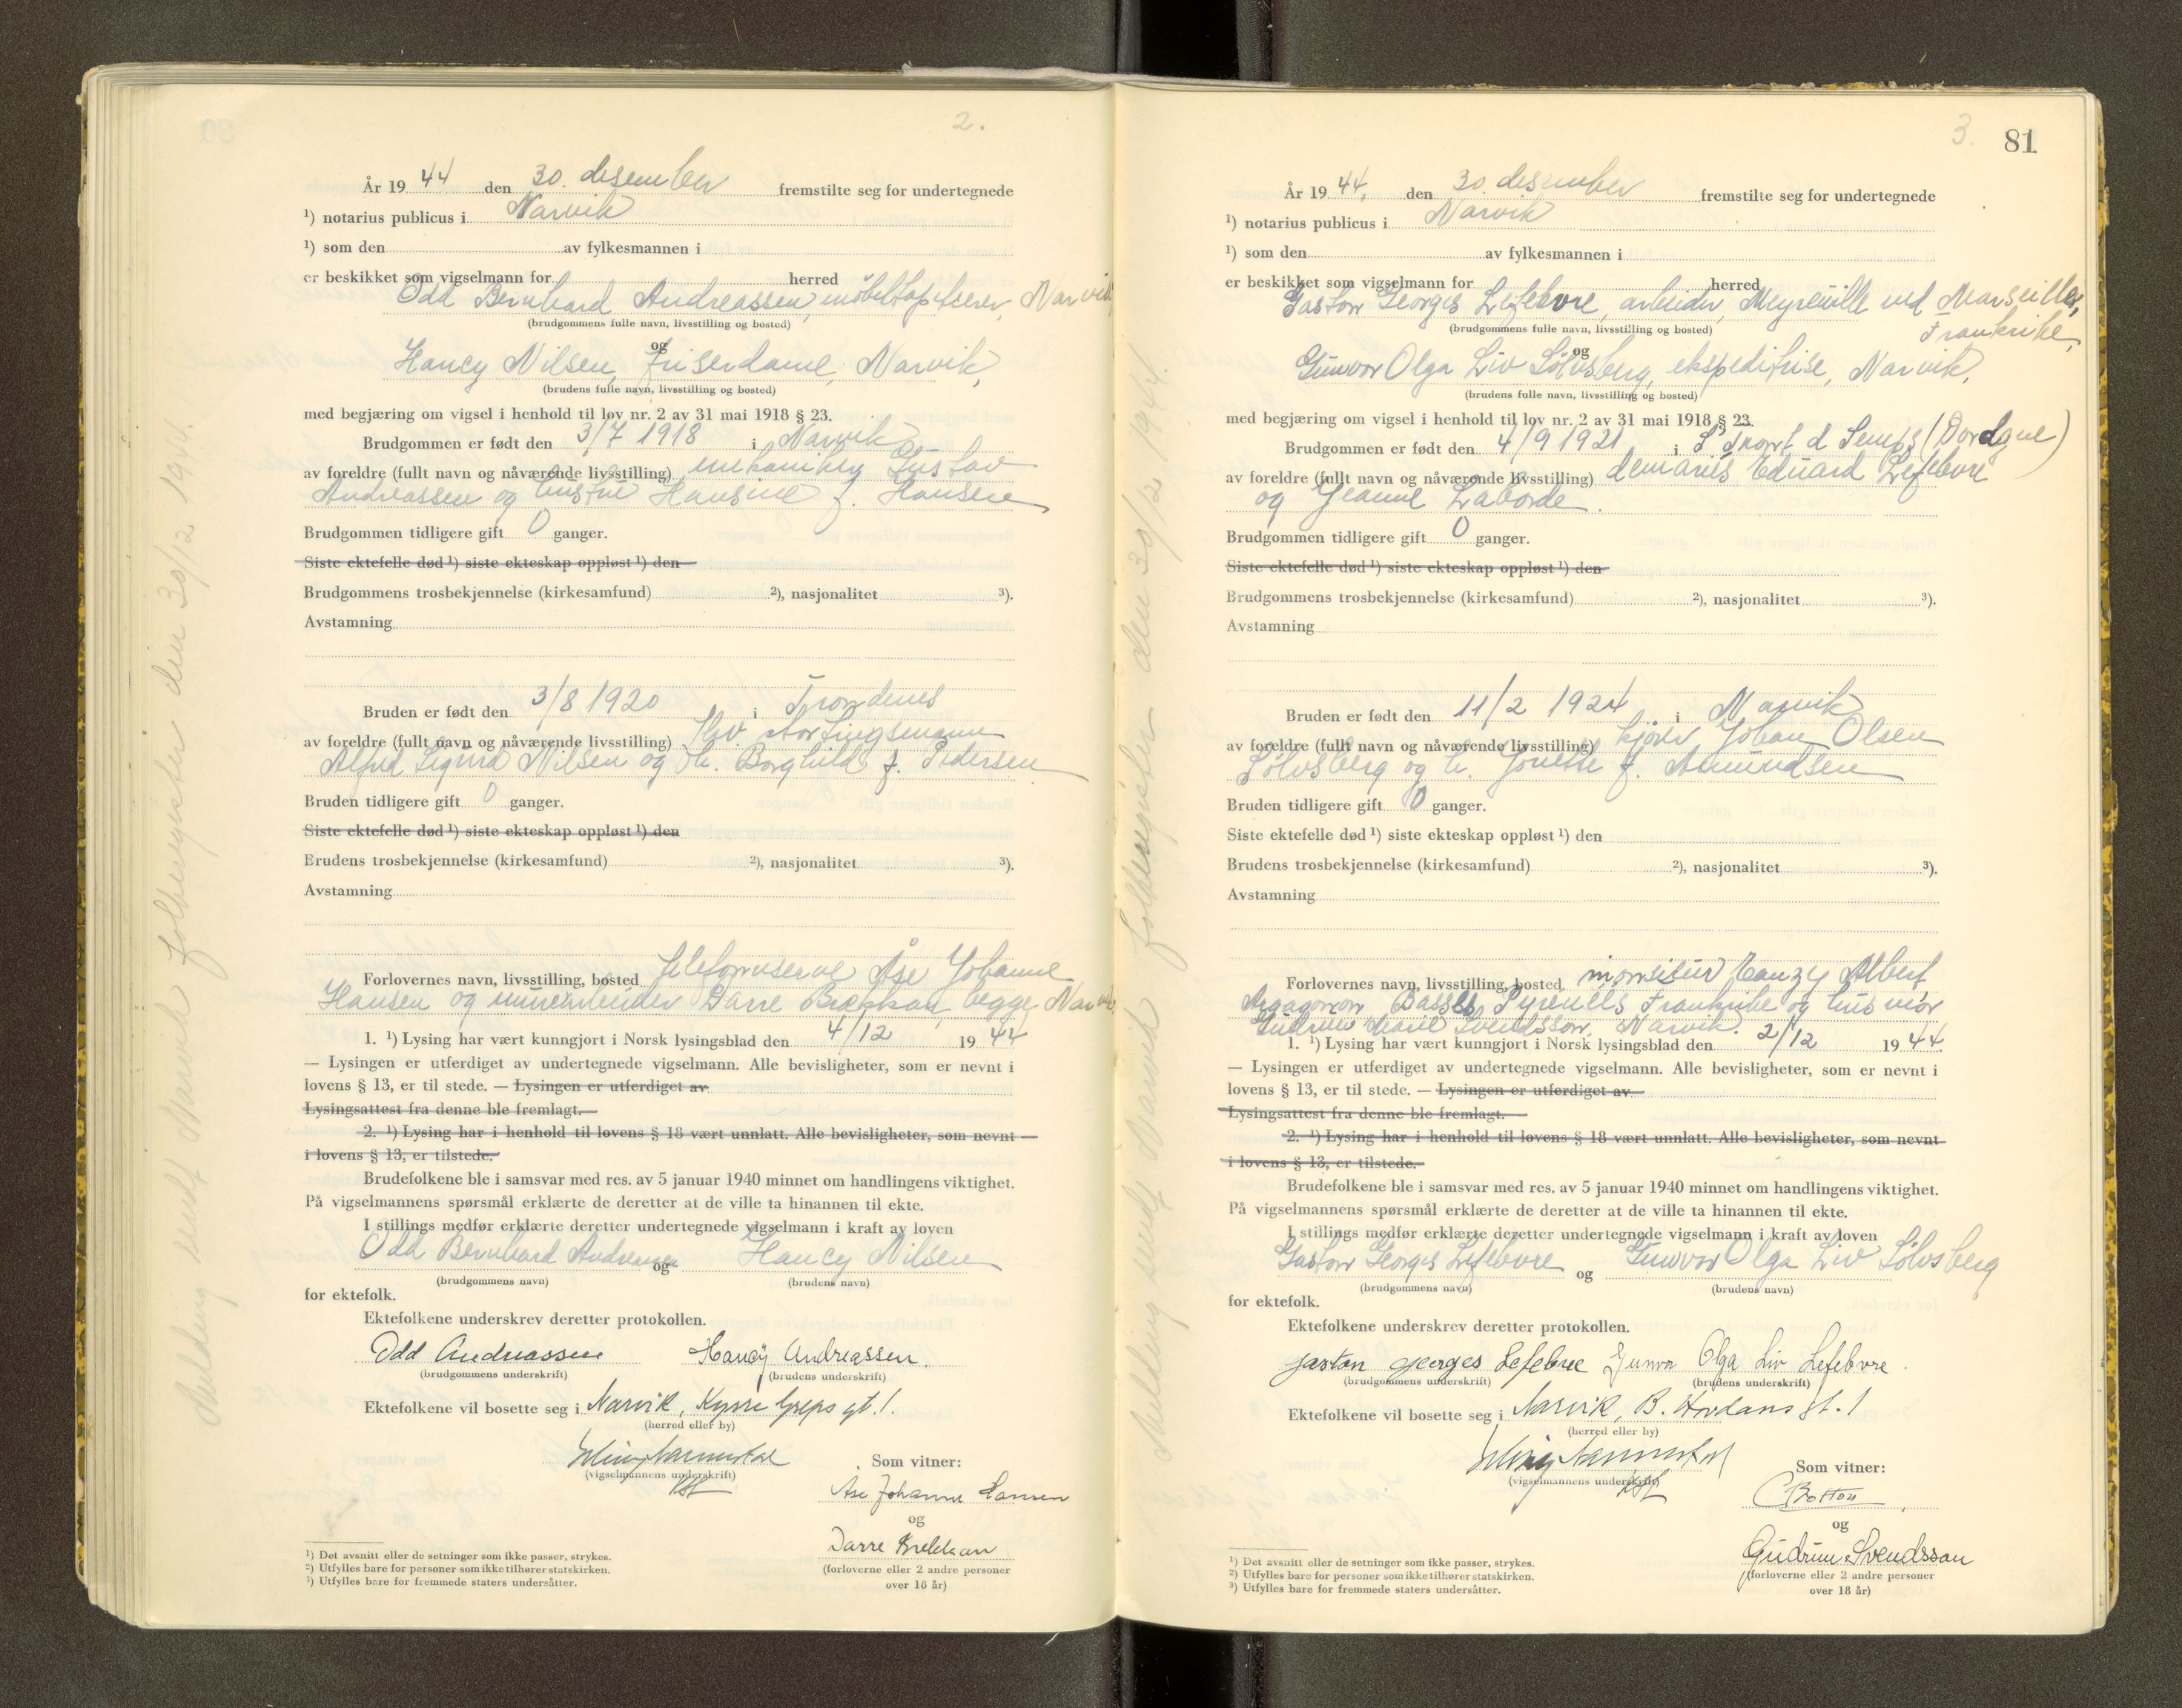 2.
År 19 44 den 30. desember fremstilte seg for undertegnede
¹) notarius publicus i Narvik
¹) som den av fylkesmannen i
er beskikket som vigselmann for herred
Odd Bernhard Andreassen, møbeltapetserer, Narvik,
(brudgommens fulle navn, livsstilling og bosted)
og
Hancy Nilsen, friserdame, Narvik,
(brudens fulle navn, livsstilling og bosted)
med begjæring om vigsel i henhold til lov nr. 2 av 31 mai 1918 § 23.
Brudgommen er født den 3/7 1918 i Narvik
av foreldre (fullt navn og nåværende livsstilling) mekaniker Gustav
Andreassen og hustru Hansine f. Hansen
Brudgommen tidligere gift 0 ganger.
Siste ektefelle død ¹) siste ekteskap oppløst ¹) den
Brudgommens trosbekjennelse (kirkesamfund) ²), nasjonalitet ³).
Avstamning
Bruden er født den 3/8 1920 i Trondenes
av foreldre (fullt navn og nåværende livsstilling) stortingsmann
Alfred Sigurd Nilsen og h. Borghild f. Pedersen
Bruden tidligere gift 0 ganger.
Siste ektefelle død ¹) siste ekteskap oppløst ¹) den
Brudens trosbekjennelse (kirkesamfund) ²), nasjonalitet ³).
Avstamning
Forlovernes navn, livsstilling, bosted Åse Johanne
Hansen og murerarbeider Darre Brekkan, begge Narvik.
1. ¹) Lysing har vært kunngjort i Norsk lysingsblad den 4/12 19 44
— Lysingen er utferdiget av undertegnede vigselmann. Alle bevisligheter, som er nevnt i
lovens § 13, er til stede. — Lysingen er utferdiget av
Lysingsattest fra denne ble fremlagt.
2. ¹) Lysing har i henhold til lovens § 18 vært unnlatt. Alle bevisligheter, som nevnt
i lovens § 13, er tilstede.
Brudefolkene ble i samsvar med res. av 5 januar 1940 minnet om handlingens viktighet.
På vigselmannens spørsmål erklærte de deretter at de ville ta hinannen til ekte.
I stillings medfør erklærte deretter undertegnede vigselmann i kraft av loven
Odd Bernhard Andreassen og Hancy Nilsen
(brudgommens navn) (brudens navn)
for ektefolk.
Ektefolkene underskrev deretter protokollen.
Odd Andreassen Hancy Andreassen.
(brudgommens underskrift) (brudens underskrift)
Ektefolkene vil bosette seg i Narvik, Kyrre Greps gt. 1.
(herred eller by)
(vigselmannens underskrift)
Som vitner:
Åse Johanne Hansen
og
Darre Brekkan
(forloverne eller 2 andre personer
over 18 år)
¹) Det avsnitt eller de setninger som ikke passer, strykes.
²) Utfylles bare for personer som ikke tilhører statskirken.
³) Utfylles bare for fremmede staters undersåtter.
Melding sendt Narvik folkeregister den 30/12 1944.
3. 81
År 19 44, den 30. desember fremstilte seg for undertegnede
¹) notarius publicus i Narvik
¹) som den av fylkesmannen i
er beskikket som vigselmann for herred
Gaston Georges Lefebvre, arbeider, Meyreuille ved Marseilles,
Frankrike,
(brudgommens fulle navn, livsstilling og bosted)
og
Gunvor Olga Liv Sølvsberg, ekspeditrise, Narvik,
(brudens fulle navn, livsstilling og bosted)
med begjæring om vigsel i henhold til lov nr. 2 av 31 mai 1918 § 23.
Brudgommen er født den 4/9 1921 i (Dordgne)
av foreldre (fullt navn og nåværende livsstilling) Eduard Lefebvre
og Jeanne Laborde.
Brudgommen tidligere gift 0 ganger.
Siste ektefelle død ¹) siste ekteskap oppløst ¹) den
Brudgommens trosbekjennelse (kirkesamfund) ²), nasjonalitet ³).
Avstamning
Bruden er født den 11/2 1924 i Narvik
av foreldre (fullt navn og nåværende livsstilling) Johan Olsen
Sølvsberg og h. f. Amundsen
Bruden tidligere gift 0 ganger.
Siste ektefelle død ¹) siste ekteskap oppløst ¹) den
Brudens trosbekjennelse (kirkesamfund) ²), nasjonalitet ³).
Avstamning
Forlovernes navn, livsstilling, bosted Albert,
Basses Pyrenees Frankrike og husmor
Gudrun Marie Svendsson, Narvik.
1. ¹) Lysing har vært kunngjort i Norsk lysingsblad den 2/12 19 44.
— Lysingen er utferdiget av undertegnede vigselmann. Alle bevisligheter, som er nevnt i
lovens § 13, er til stede. — Lysingen er utferdiget av
Lysingsattest fra denne ble fremlagt.
2. ¹) Lysing har i henhold til lovens § 18 vært unnlatt. Alle bevisligheter, som nevnt
i lovens § 13, er tilstede.
Brudefolkene ble i samsvar med res. av 5 januar 1940 minnet om handlingens viktighet.
På vigselmannens spørsmål erklærte de deretter at de ville ta hinannen til ekte.
I stillings medfør erklærte deretter undertegnede vigselmann i kraft av loven
Gaston Georges Lefebvre og Gunvor Olga Liv Sølvsberg
(brudgommens navn) (brudens navn)
for ektefolk.
Ektefolkene underskrev deretter protokollen.
gaston georges Lefebvre Gunvor Olga Liv Lefebvre.
(brudgommens underskrift) (brudens underskrift)
Ektefolkene vil bosette seg i Narvik, B. Hordans gt. 1
(herred eller by)
(vigselmannens underskrift)
Som vitner:
og
Gudrun Svendsson
(forloverne eller 2 andre personer
over 18 år)
¹) Det avsnitt eller de setninger som ikke passer, strykes.
²) Utfylles bare for personer som ikke tilhører statskirken.
³) Utfylles bare for fremmede staters undersåtter.
Melding sendt Narvik folkeregister den 30/12 1944.